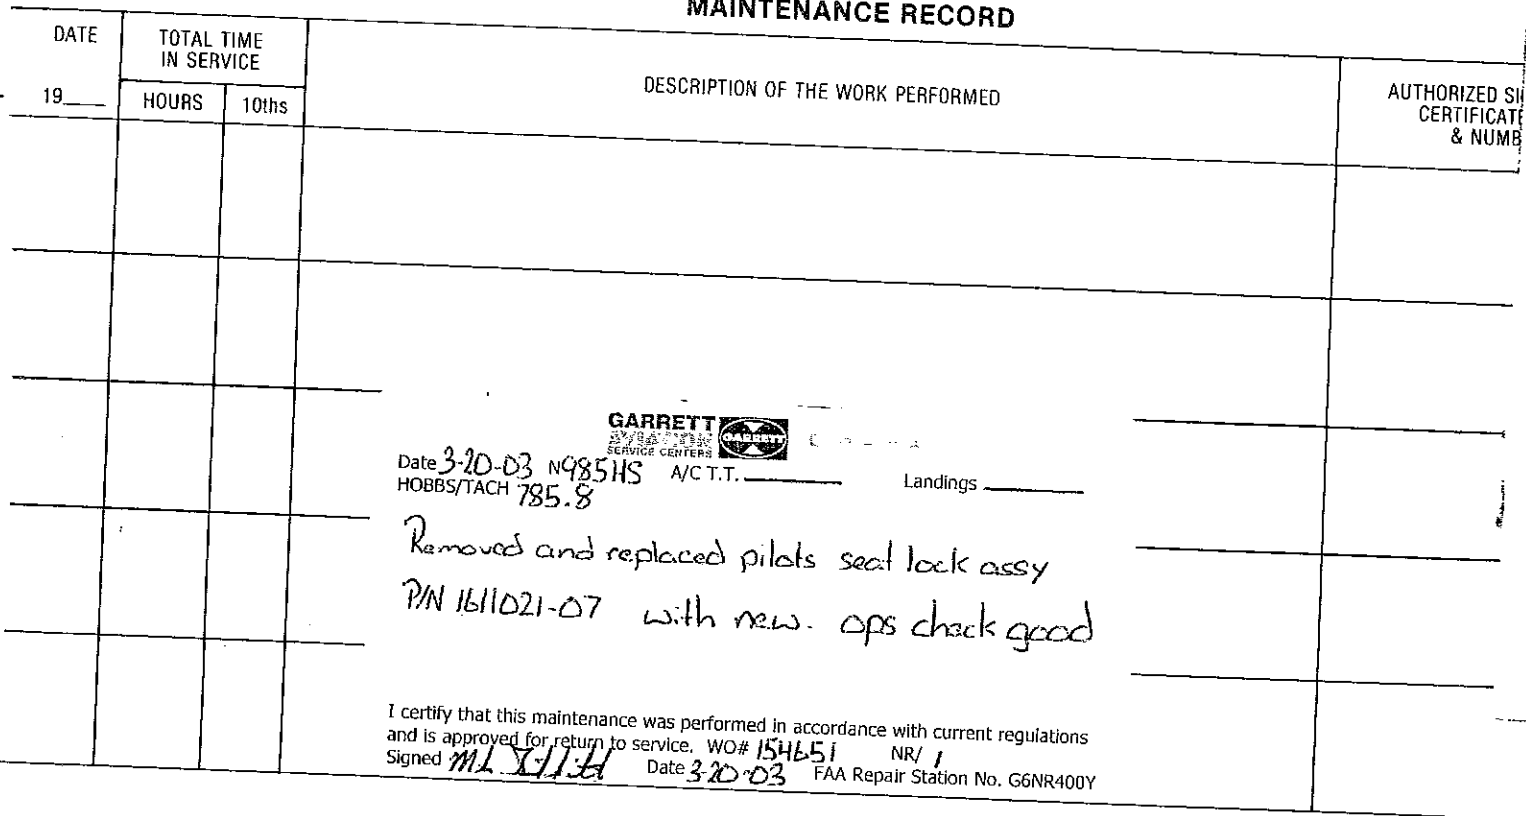 MAINTENANCE RECORD
DATE
19___
TOTAL TIME
IN SERVICE
HOURS
10ths
DESCRIPTION OF THE WORK PERFORMED
AUTHORIZED
CERTIFICATE
& NUMB
GARRETT
AVIATION
SERVICE CENTERS
GARRETT
Date 3-20-03 N985HS A/C T.T. ______ Landings ______
HOBBS/TACH 785.8
Removed and replaced pilots seat lock assy
P/N 1611021-07 with new. ops check good
I certify that this maintenance was performed in accordance with current regulations
and is approved for return to service. WO# 154651 NR/ 1
Signed Date 3-20-03 FAA Repair Station No. G6NR400Y